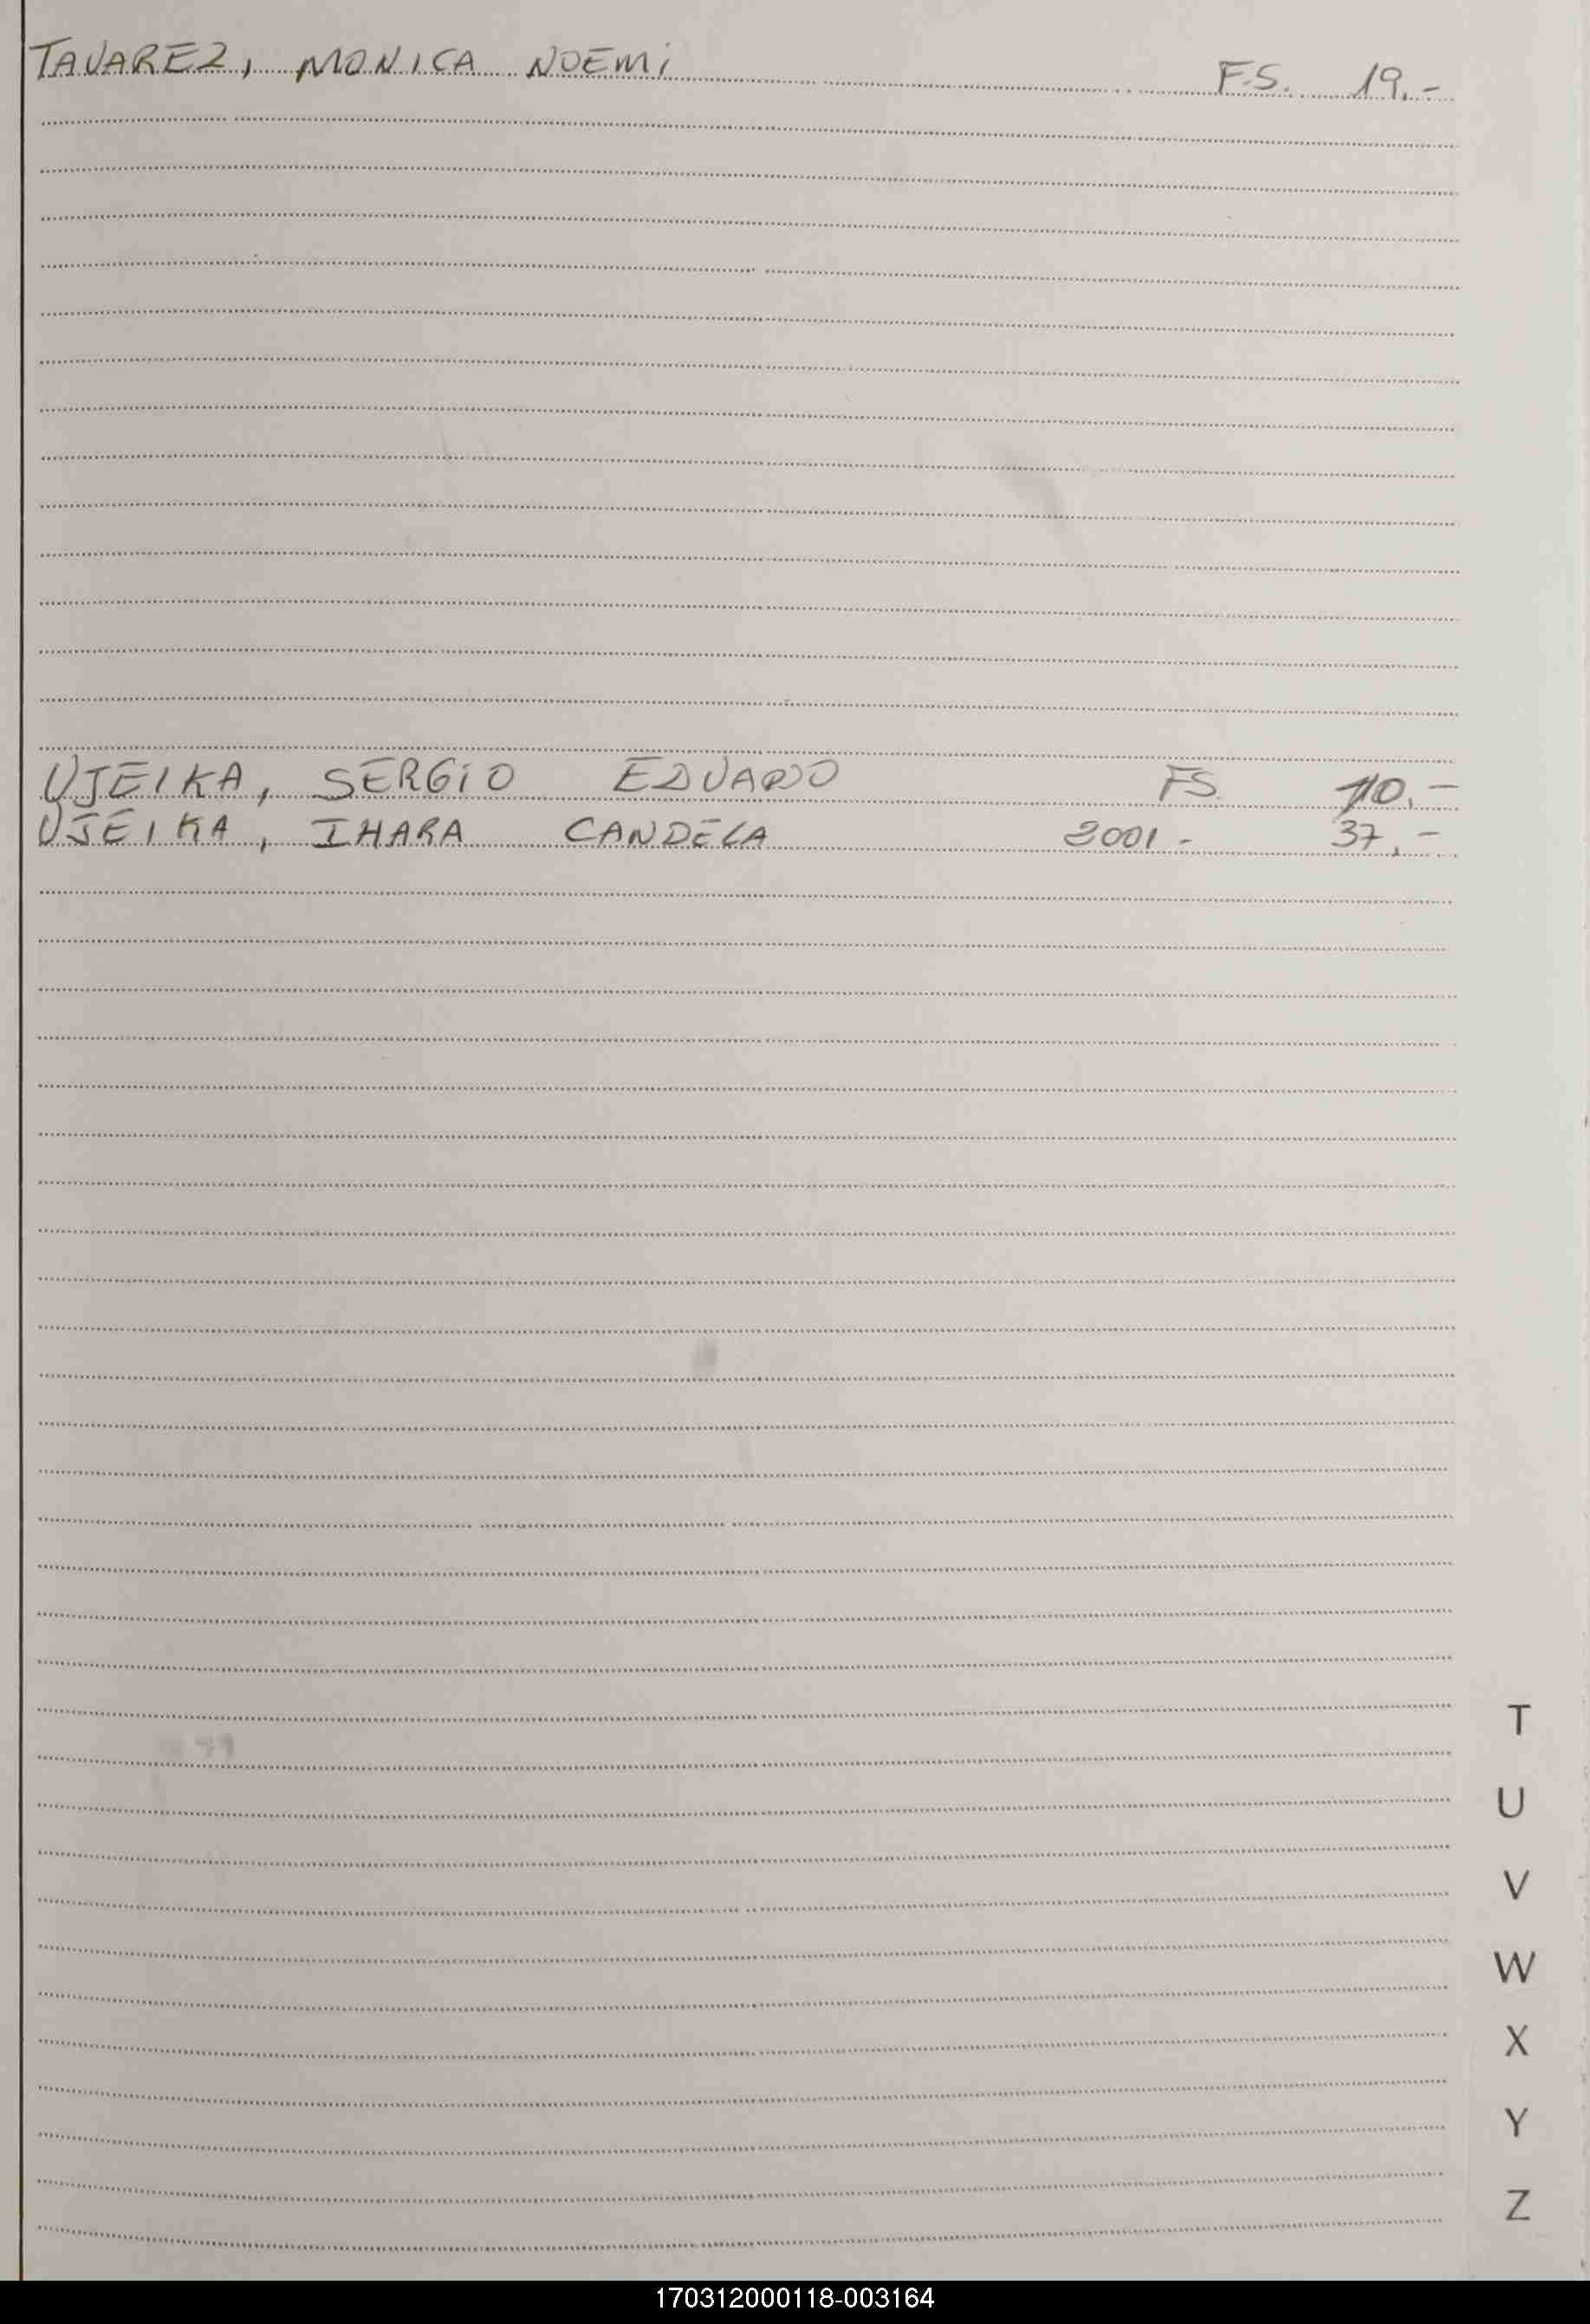 TAVAREZ, MONICA NOEMI F.S. 19.-
UJEIKA, SERGIO EDUARDO FS. 110.-
UJEIKA, IHARA CANDELA 2001- 37.-
T
U
V
W
X
Y
Z
170312000118-003164